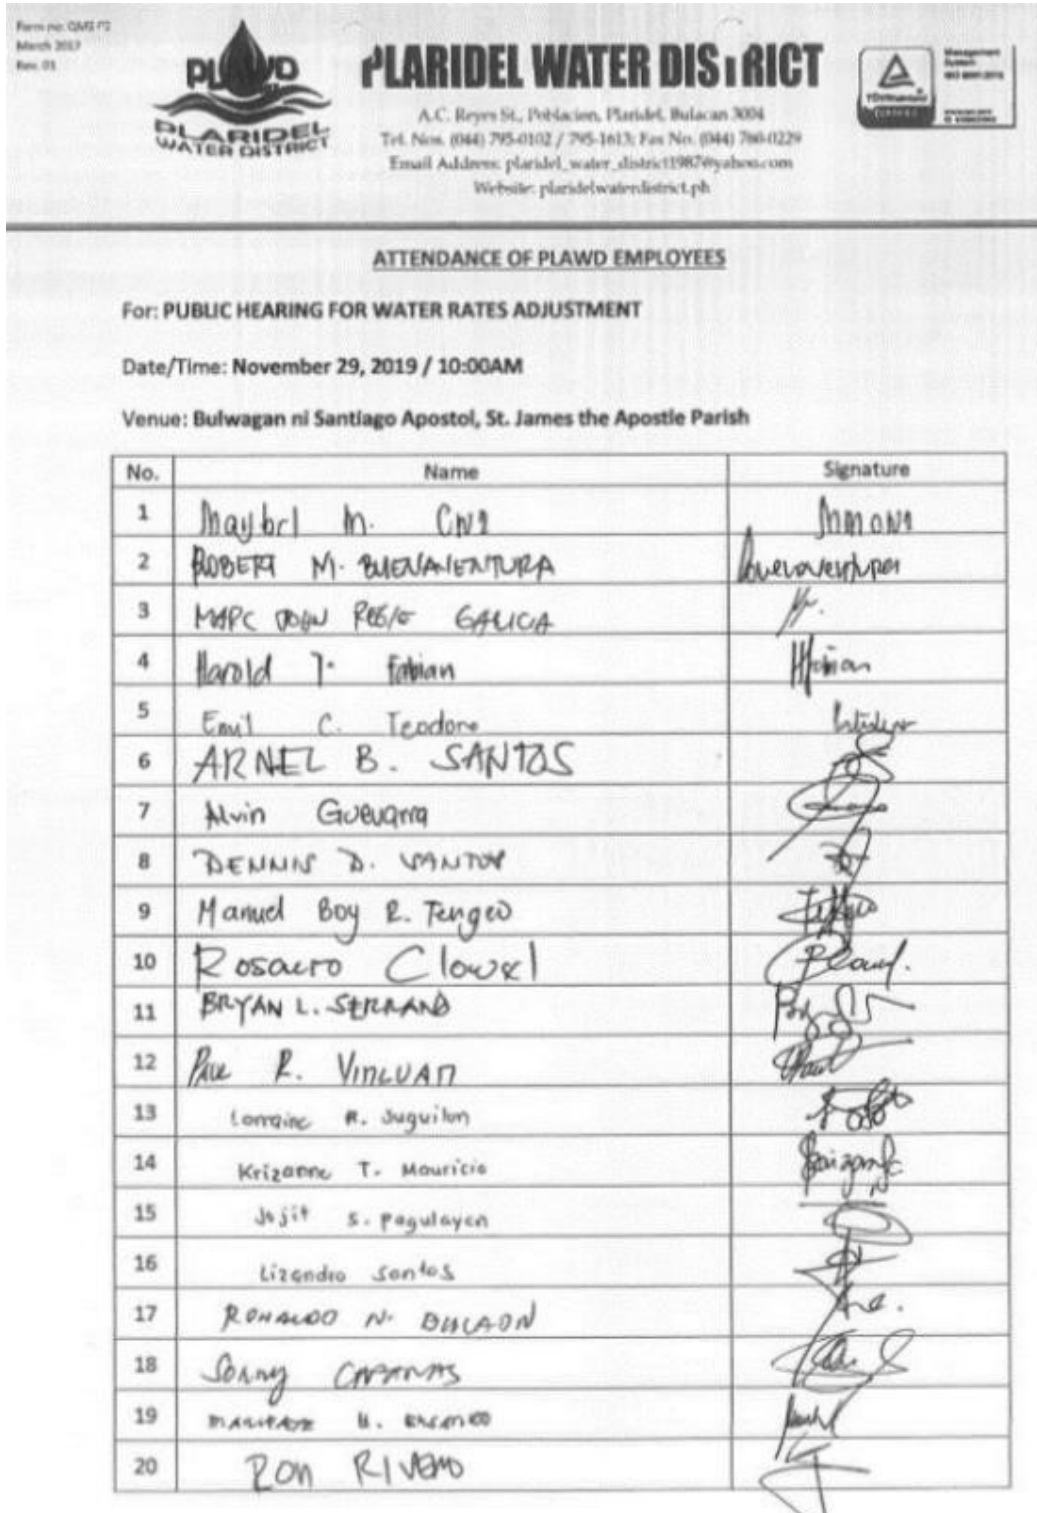 Form no: QMS F2
March 2017
Rev. 01
PLAWD
PLARIDEL
WATER DISTRICT
PLARIDEL WATER DISTRICT
A.C. Reyes St., Poblacion, Plaridel, Bulacan 3004
Tel. Nos. (044) 795-0102 / 795-1613; Fax No. (044) 760-0229
Email Address: plaridel_water_district1987@yahoo.com
Website: plaridelwaterdistrict.ph
Management
System
ISO 9001:2015
ATTENDANCE OF PLAWD EMPLOYEES
For: PUBLIC HEARING FOR WATER RATES ADJUSTMENT
Date/Time: November 29, 2019 / 10:00AM
Venue: Bulwagan ni Santiago Apostol, St. James the Apostle Parish
No. Name Signature
1 Maybel M.
2 ROBERT M. BUENAVENTURA
3 MARC JOHN REGIE GALICIA
4 Harold T. Fabian
5 Emil C. Teodoro
6 ARNEL B. SANTOS
7 Alvin Guevarra
8 DENNIS D. SANTOS
9 Manuel Boy R. Tengco
10 Rosauro Clavel
11 BRYAN L. SERRANO
12 R. VINLUAN
13 Lorraine R. Juguilon
14 Krizanne T. Mauricio
15 Jojit S. Pagulayan
16 Lizandro Santos
17 RONALDO N. BULAON
18 Sonny CABANAS
19
20 RON RIVERO